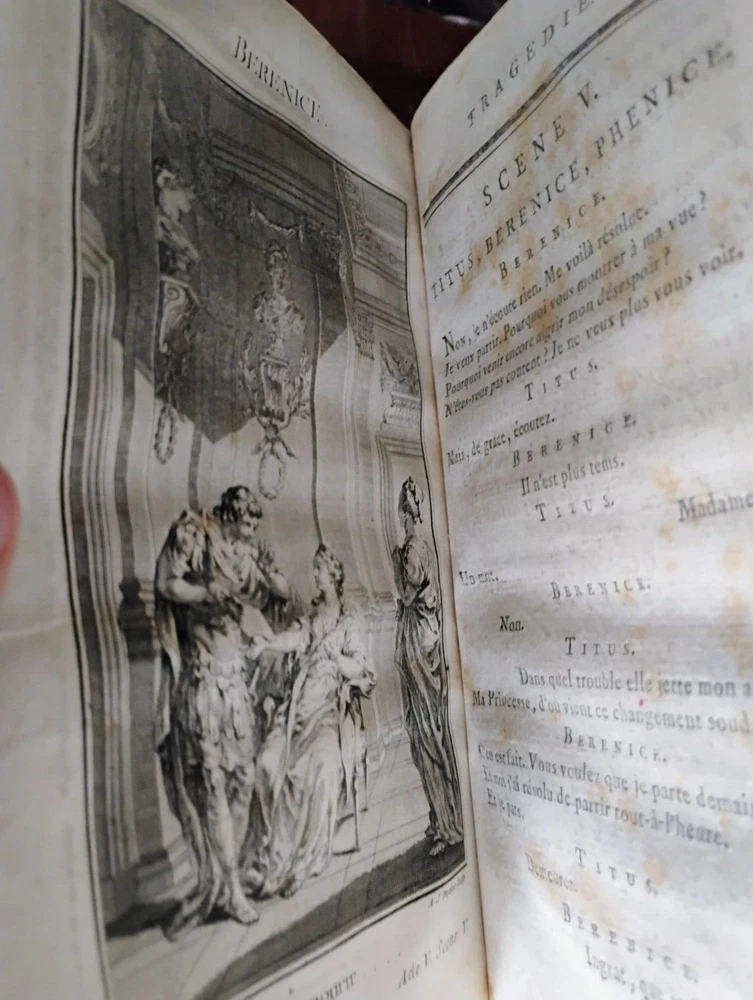 BERENICE.
Acte V. Scene V.
TRAGEDIE.
SCENE V.
TITUS, BERENICE, PHENICE.
BERENICE.
Non, je n'écoute rien. Me voilà résolue.
Je veux partir. Pourquoi vous montrer à ma vue ?
Pourquoi venir encore aigrir mon désespoir ?
N'êtes-vous pas content ? Je ne veux plus vous voir.
TITUS.
Mais, de grace, écoutez.
BERENICE.
Il n'est plus tems.
TITUS.
Madame
Un mot.
BERENICE.
Non.
TITUS.
Dans quel trouble elle jette mon
Ma Princesse, d'où vient ce changement soud
BERENICE.
C'en est fait. Vous voulez que je parte demain
Et moi j'ai résolu de partir tout-à-l'heure.
Et je pars.
TITUS.
Demeurez.
BERENICE.
Ingrat, que